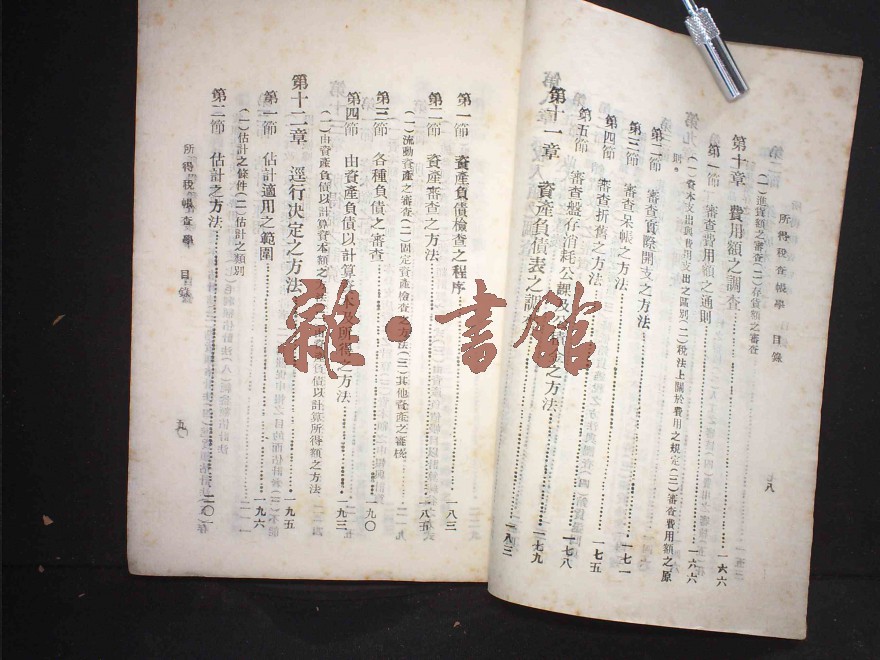 所得稅查帳學 目錄
(一)進貨額之審查(二)存貨額之審查
第十章 費用額之調查
一六六
第一節 審查費用額之通則
一六六
(一)資本支出與費用支出之區別(二)稅法上關於費用之規定(三)審查費用額之原
則。
第二節 審查實際開支之方法
一七一
第三節 審查呆賬之方法
第四節 審查折舊之方法
一七五
第五節 審查盤存消耗公課及 之方法
一七八
一七九
第十一章 資產負債表之調
一八三
八
第一節 資產負債檢查之程序
一八三
第二節 資產審查之方法
一八五
(一)流動資產之審查(二)固定資產檢查之方法(三)其他資產之審核
第三節 各種負債之審查
一九〇
第四節 由資產負債以計算 及所得之方法
一九三
(一)由資產負債以計算資本額之 負債以計算所得額之方法
第十二章 逕行決定之方法
一九五
第一節 估計適用之範圍
一九六
(一)估計之條件(二)估計之類別
第二節 估計之方法
二〇一
所得稅帳查學 目錄
九
雜·書館